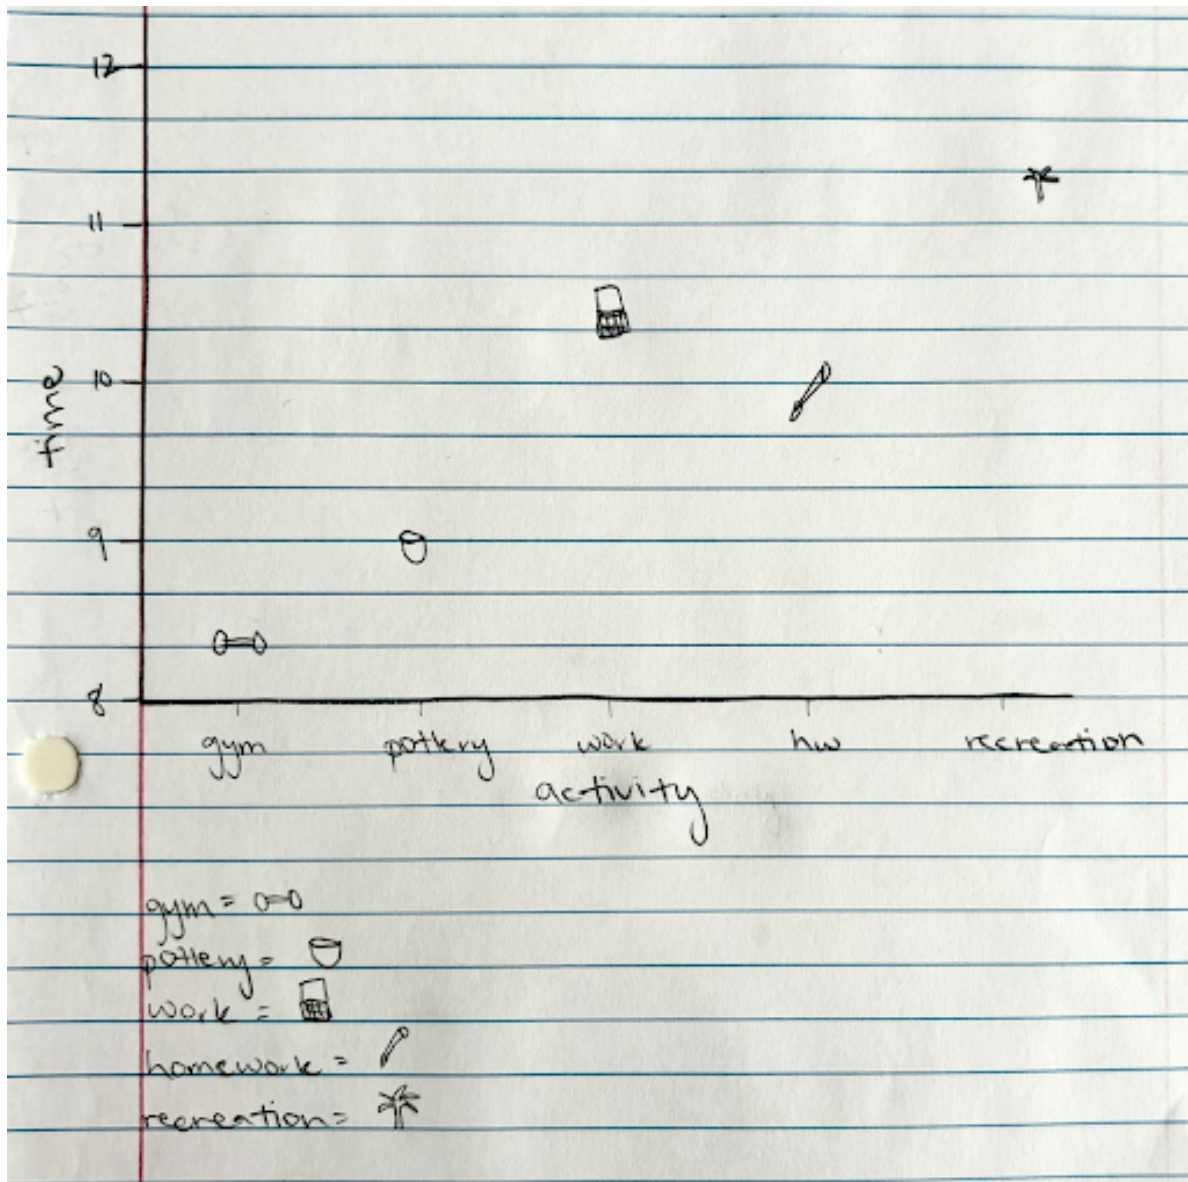 12
11
10
time
9
8
gym pottery work hw recreation
activity
gym =
pottery =
work =
homework =
recreation =